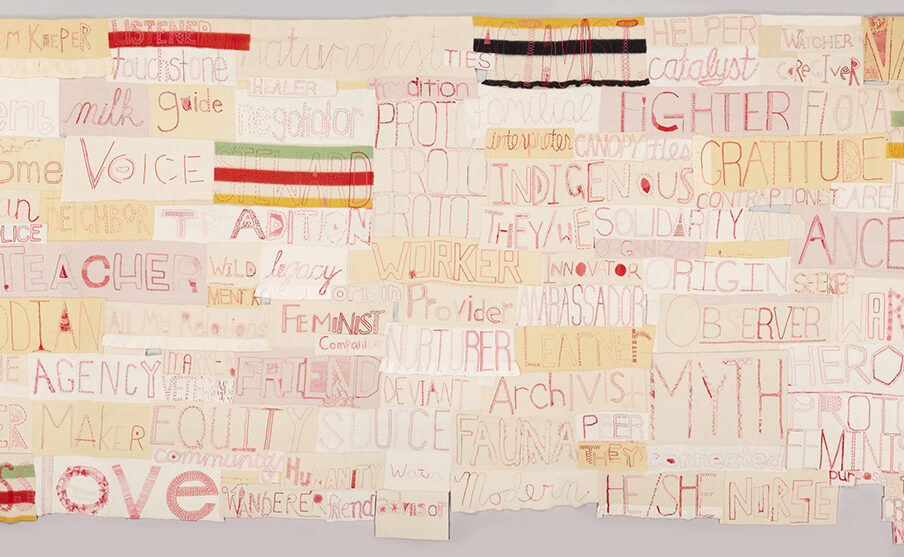 KEEPER
LISTENER
naturalist
TIES
HELPER
WATCHER
touchstone
catalyst
CAREGIVER
HEALER
tradition
milk
guide
negotiator
PROT
familial
FIGHTER
FLORA
VOICE
STEWARD
PROTO
interpreter
CANOPY
titles
GRATITUDE
INDIGENOUS
CONTRAPTIONS
CARE
NEIGHBOR
TRADITION
PROTO
THEY/WE
SOLIDARITY
ANCE
TEACHER
WILD
legacy
WORKER
ORGANIZER
INNOVATOR
ORIGIN
SEEKER
MENTOR
origin
Provider
AMBASSADOR
ODIAN
All My Relations
FEMINIST
Companion
OBSERVER
WAR
NURTURER
LEADER
AGENCY
FRIEND
DEVIANT
Archivist
MYTH
HERO
MAKER
EQUITY
FAUNA
PROT
THEY
FEMINIS
community
HUMANITY
Water
connected
LOVe
WANDERER
friend
advisor
Modern
HE/SHE
NURSE